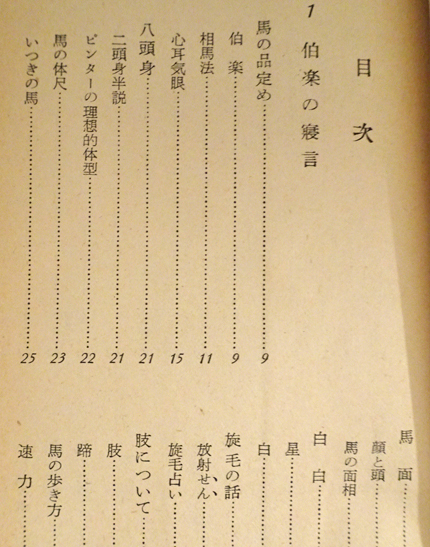 目次
1 伯楽の寝言
馬の品定め……9
伯楽……9
相馬法……11
心耳気眼……15
八頭身……21
二頭身半説……21
ピンターの理想的体型……22
馬の体尺……23
いつきの馬……25
馬面……
顔と頭……
馬の面相……
白白……
星……
白……
旋毛の話……
放射せん……
旋毛占い……
肢について……
肢……
蹄……
馬の歩き方……
速力……